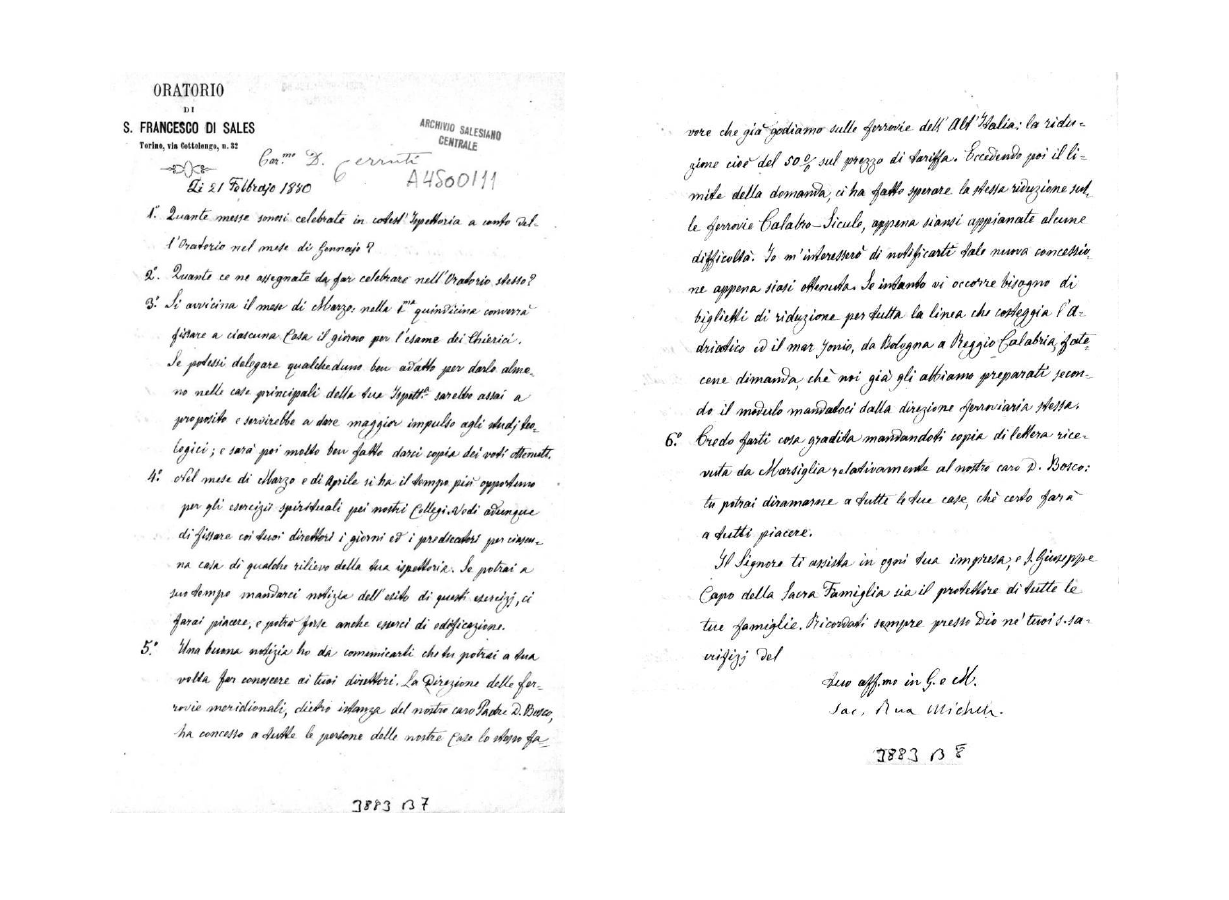 ORATORIO
DI
S. FRANCESCO DI SALES
Torino, via Cottolengo, n. 32
ARCHIVIO SALESIANO
CENTRALE
Car.mo D. Cerruti
A4500111
Li 21 Febbrajo 1880
1º. Quante messe sonosi celebrate in cotest'Ispettoria a conto del-
l'Oratorio nel mese di Gennajo?
2º. Quante ce ne assegnate da far celebrare nell'Oratorio stesso?
3º. Si avvicina il mese di Marzo: nella 1ma quindicina converrà
fissare a ciascuna Casa il giorno per l'esame dei Chierici.
Se potessi delegare qualcheduno ben adatto per darlo alme-
no nelle case principali della tua Ispett.a sarebbe assai a
proposito e servirebbe a dare maggior impulso agli studj teo-
logici; e sarà poi molto ben fatto darci copia dei voti ottenuti.
4º. Nel mese di Marzo e di Aprile si ha il tempo più opportuno
per gli esercizii spirituali pei nostri Collegi. Vedi adunque
di fissare coi tuoi direttori i giorni ed i predicatori per ciascu-
na casa di qualche rilievo della tua ispettoria. Se potrai a
suo tempo mandarci notizia dell'esito di questi esercizj, ci
farai piacere, e potrà forse anche esserci di edificazione.
5º. Una buona notizia ho da comunicarti che tu potrai a tua
volta far conoscere ai tuoi direttori. La Direzione delle fer-
rovie meridionali, dietro istanza del nostro caro Padre D. Bosco,
ha concesso a tutte le persone delle nostre Case lo stesso fa-
3883 B 7
vore che già godiamo sulle ferrovie dell'Alt'Italia: la ridu-
zione cioè del 50 % sul prezzo di tariffa. Eccedendo poi il li-
mite della domanda, ci ha fatto sperare la stessa riduzione sul-
le ferrovie Calabro-Sicule, appena siansi appianate alcune
difficoltà. Io m'interesserò di notificarti tale nuova concessio-
ne appena siasi ottenuta. Se intanto vi occorre bisogno di
biglietti di riduzione per tutta la linea che costeggia l'A-
driatico ed il mar Jonio, da Bologna a Reggio Calabria, fate-
cene dimanda, chè noi già gli abbiamo preparati secon-
do il modulo mandatoci dalla direzione ferroviaria stessa.
6º. Credo farti cosa gradita mandandoti copia di lettera rice-
vuta da Marsiglia relativamente al nostro caro D. Bosco:
tu potrai diramarne a tutte le tue case, chè certo farà
a tutti piacere.
Il Signore ti assista in ogni tua impresa, e S. Giuseppe
Capo della Sacra Famiglia sia il protettore di tutte le
tue famiglie. Ricordati sempre presso Dio ne' tuoi s. sa-
crifizj del
tuo aff.mo in G. e M.
Sac. Rua Michele.
3883 B 8